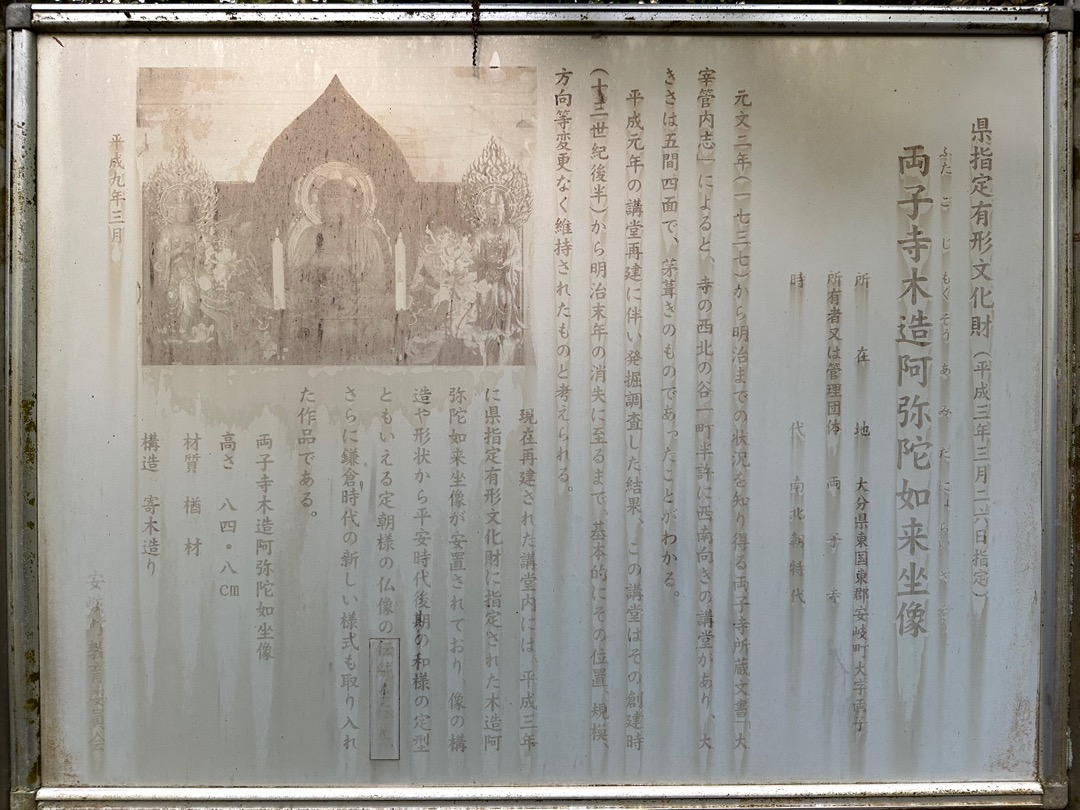 県指定有形文化財(平成三年三月二六日指定)
ふた ご じ もくぞう あ み だ にょ らい ざ ぞう
両子寺木造阿弥陀如来坐像
所在地 大分県東国東郡安岐町大字両子
所有者又は管理団体 両子寺
時代 南北朝時代
元文二年(一七三七)から明治までの状況を知り得る両子寺所蔵文書「大
宰管内志」によると、寺の西北の谷一町半許に西南向きの講堂があり、大
きさは五間四面で、茅葺きのものであったことがわかる。
平成元年の講堂再建に伴い発掘調査した結果、この講堂はその創建時
(十三世紀後半)から明治末年の消失に至るまで、基本的にその位置、規模、
方向等変更なく維持されたものと考えられる。
現在再建された講堂内には、平成三年
に県指定有形文化財に指定された木造阿
弥陀如来坐像が安置されており、像の構
造や形状から平安時代後期の和様の定型
ともいえる定朝様の仏像の
さらに鎌倉時代の新しい様式も取り入れ
た作品である。
両子寺木造阿弥陀如坐像
高さ 八四・八cm
材質 楢材
構造 寄木造り
平成九年三月
安岐町教育委員会